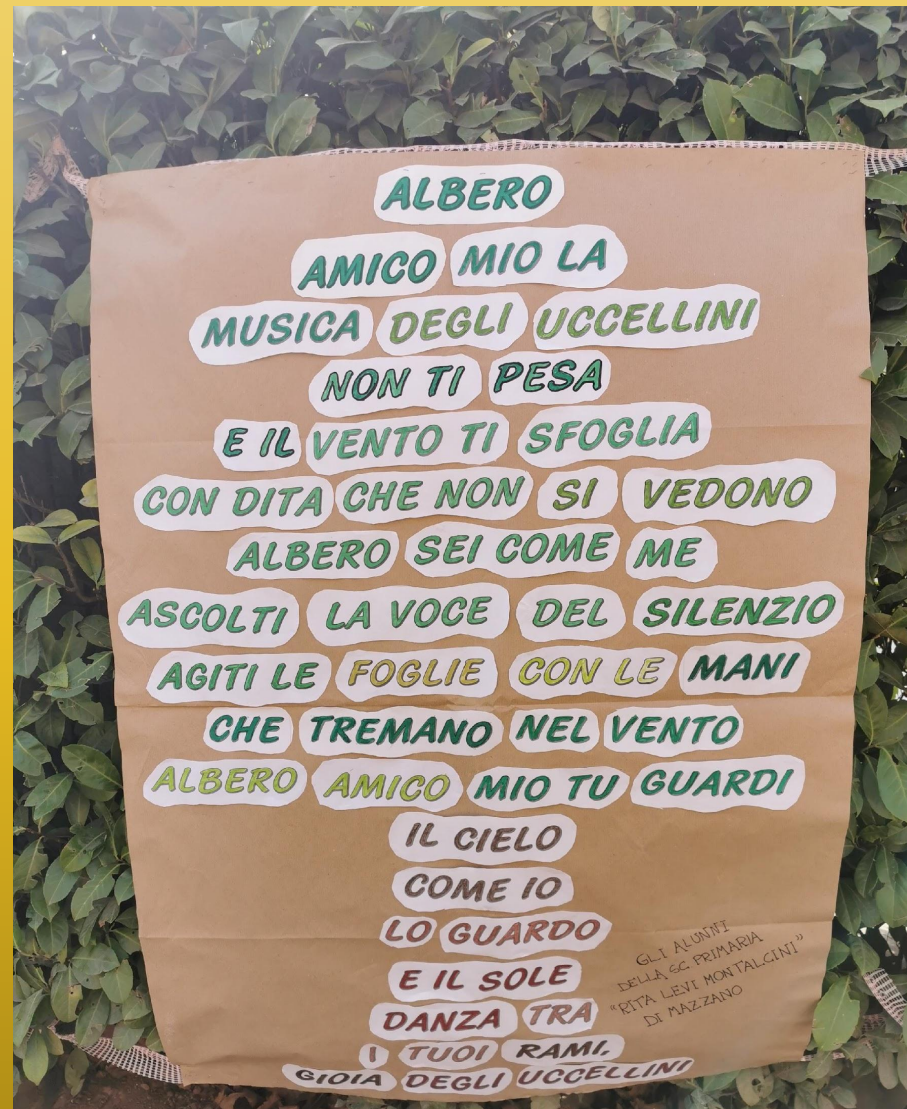 ALBERO
AMICO MIO LA
MUSICA DEGLI UCCELLINI
NON TI PESA
E IL VENTO TI SFOGLIA
CON DITA CHE NON SI VEDONO
ALBERO SEI COME ME
ASCOLTI LA VOCE DEL SILENZIO
AGITI LE FOGLIE CON LE MANI
CHE TREMANO NEL VENTO
ALBERO AMICO MIO TU GUARDI
IL CIELO
COME IO
LO GUARDO
E IL SOLE
DANZA TRA
I TUOI RAMI.
GIOIA DEGLI UCCELLINI
GLI ALUNNI
DELLA 6C PRIMARIA
"RITA LEVI MONTALCINI"
DI MAZZANO